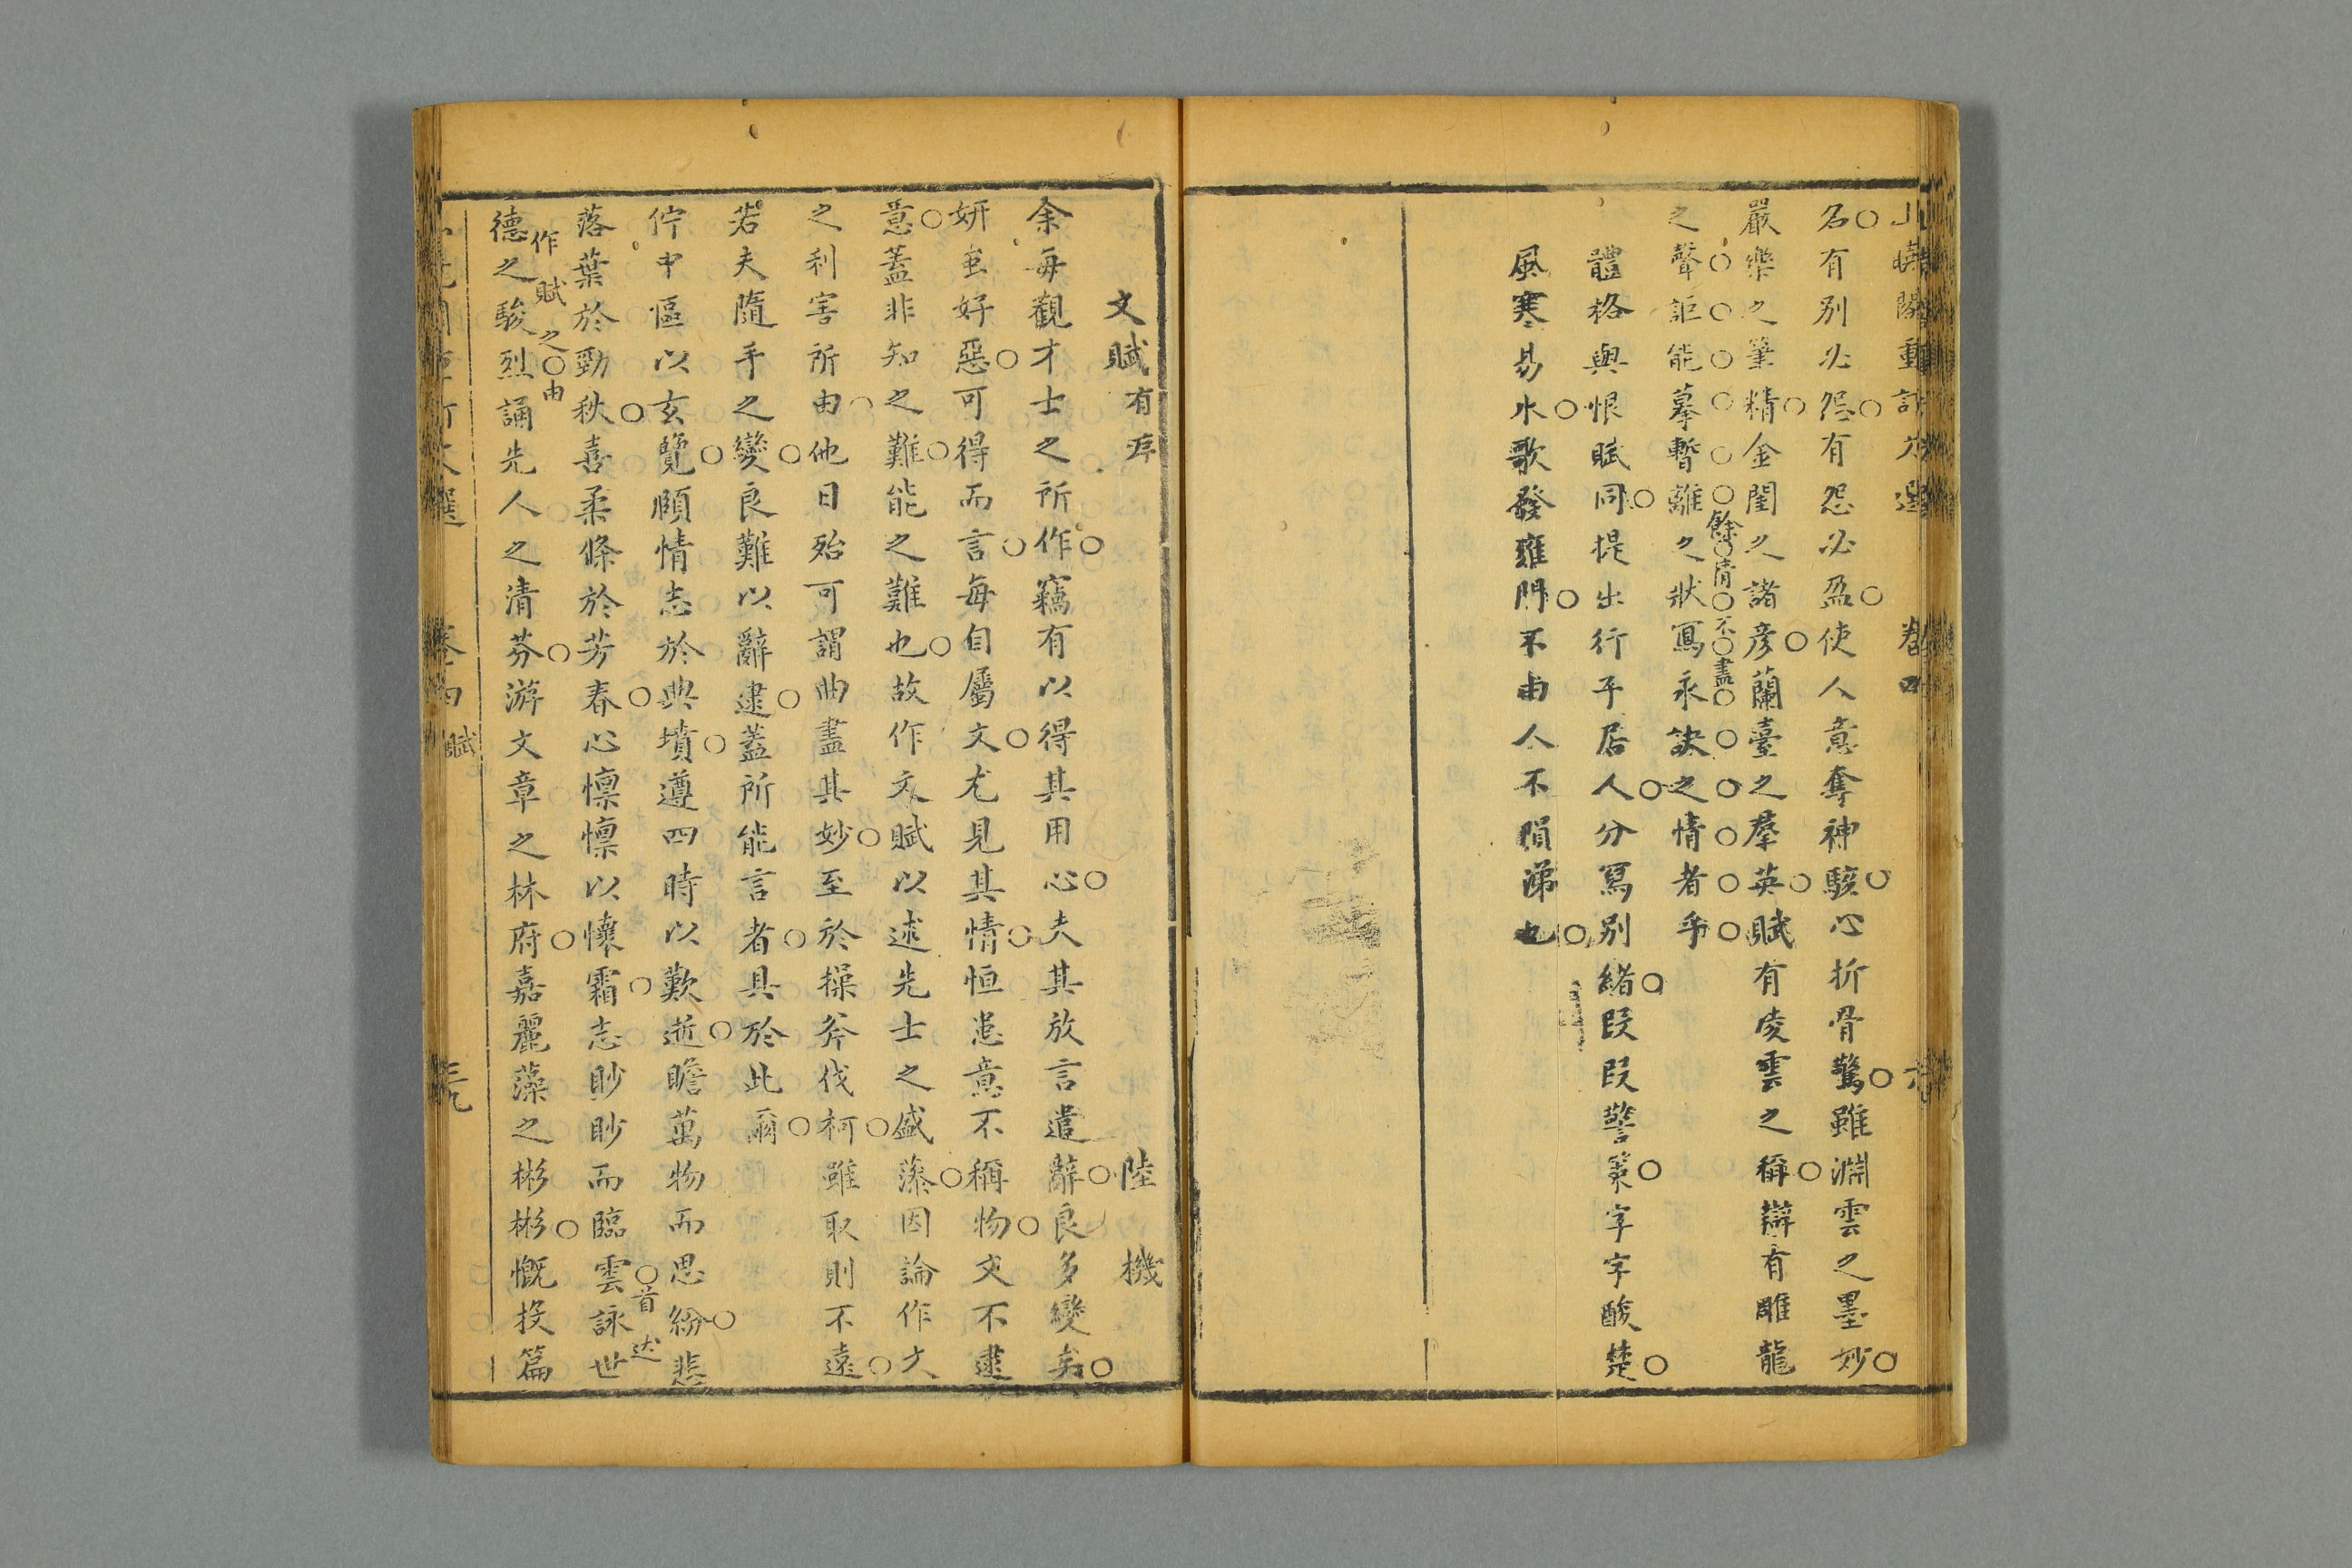 名有別必怨有怨必盈使人意奪神駭心折骨驚雖淵雲之墨妙
嚴樂之筆精金閨之諸彦蘭臺之羣英賦有凌雲之稱辯有雕龍
之聲詎能摹暫離之狀寫永訣之情者乎
餘情不盡
體格與恨賦同提出行子居人分寫別緒段段警策字字酸楚
風寒易水歌發雍門不由人不隕涕也
文賦有序 陸機
余每觀才士之所作竊有以得其用心夫其放言遣辭良多變矣
妍蚩好惡可得而言每自屬文尤見其情恒患意不稱物文不逮
意蓋非知之難能之難也故作文賦以述先士之盛藻因論作文
之利害所由他日殆可謂曲盡其妙至於操斧伐柯雖取則不遠
若夫隨手之變良難以辭逮蓋所能言者具於此爾
佇中區以玄覽頤情志於典墳遵四時以歎逝瞻萬物而思紛悲
落葉於勁秋喜柔條於芳春心懍懍以懷霜志眇眇而臨雲詠世
首述
作賦之由
德之駿烈誦先人之清芬游文章之林府嘉麗藻之彬彬慨投篇
卷四 賦